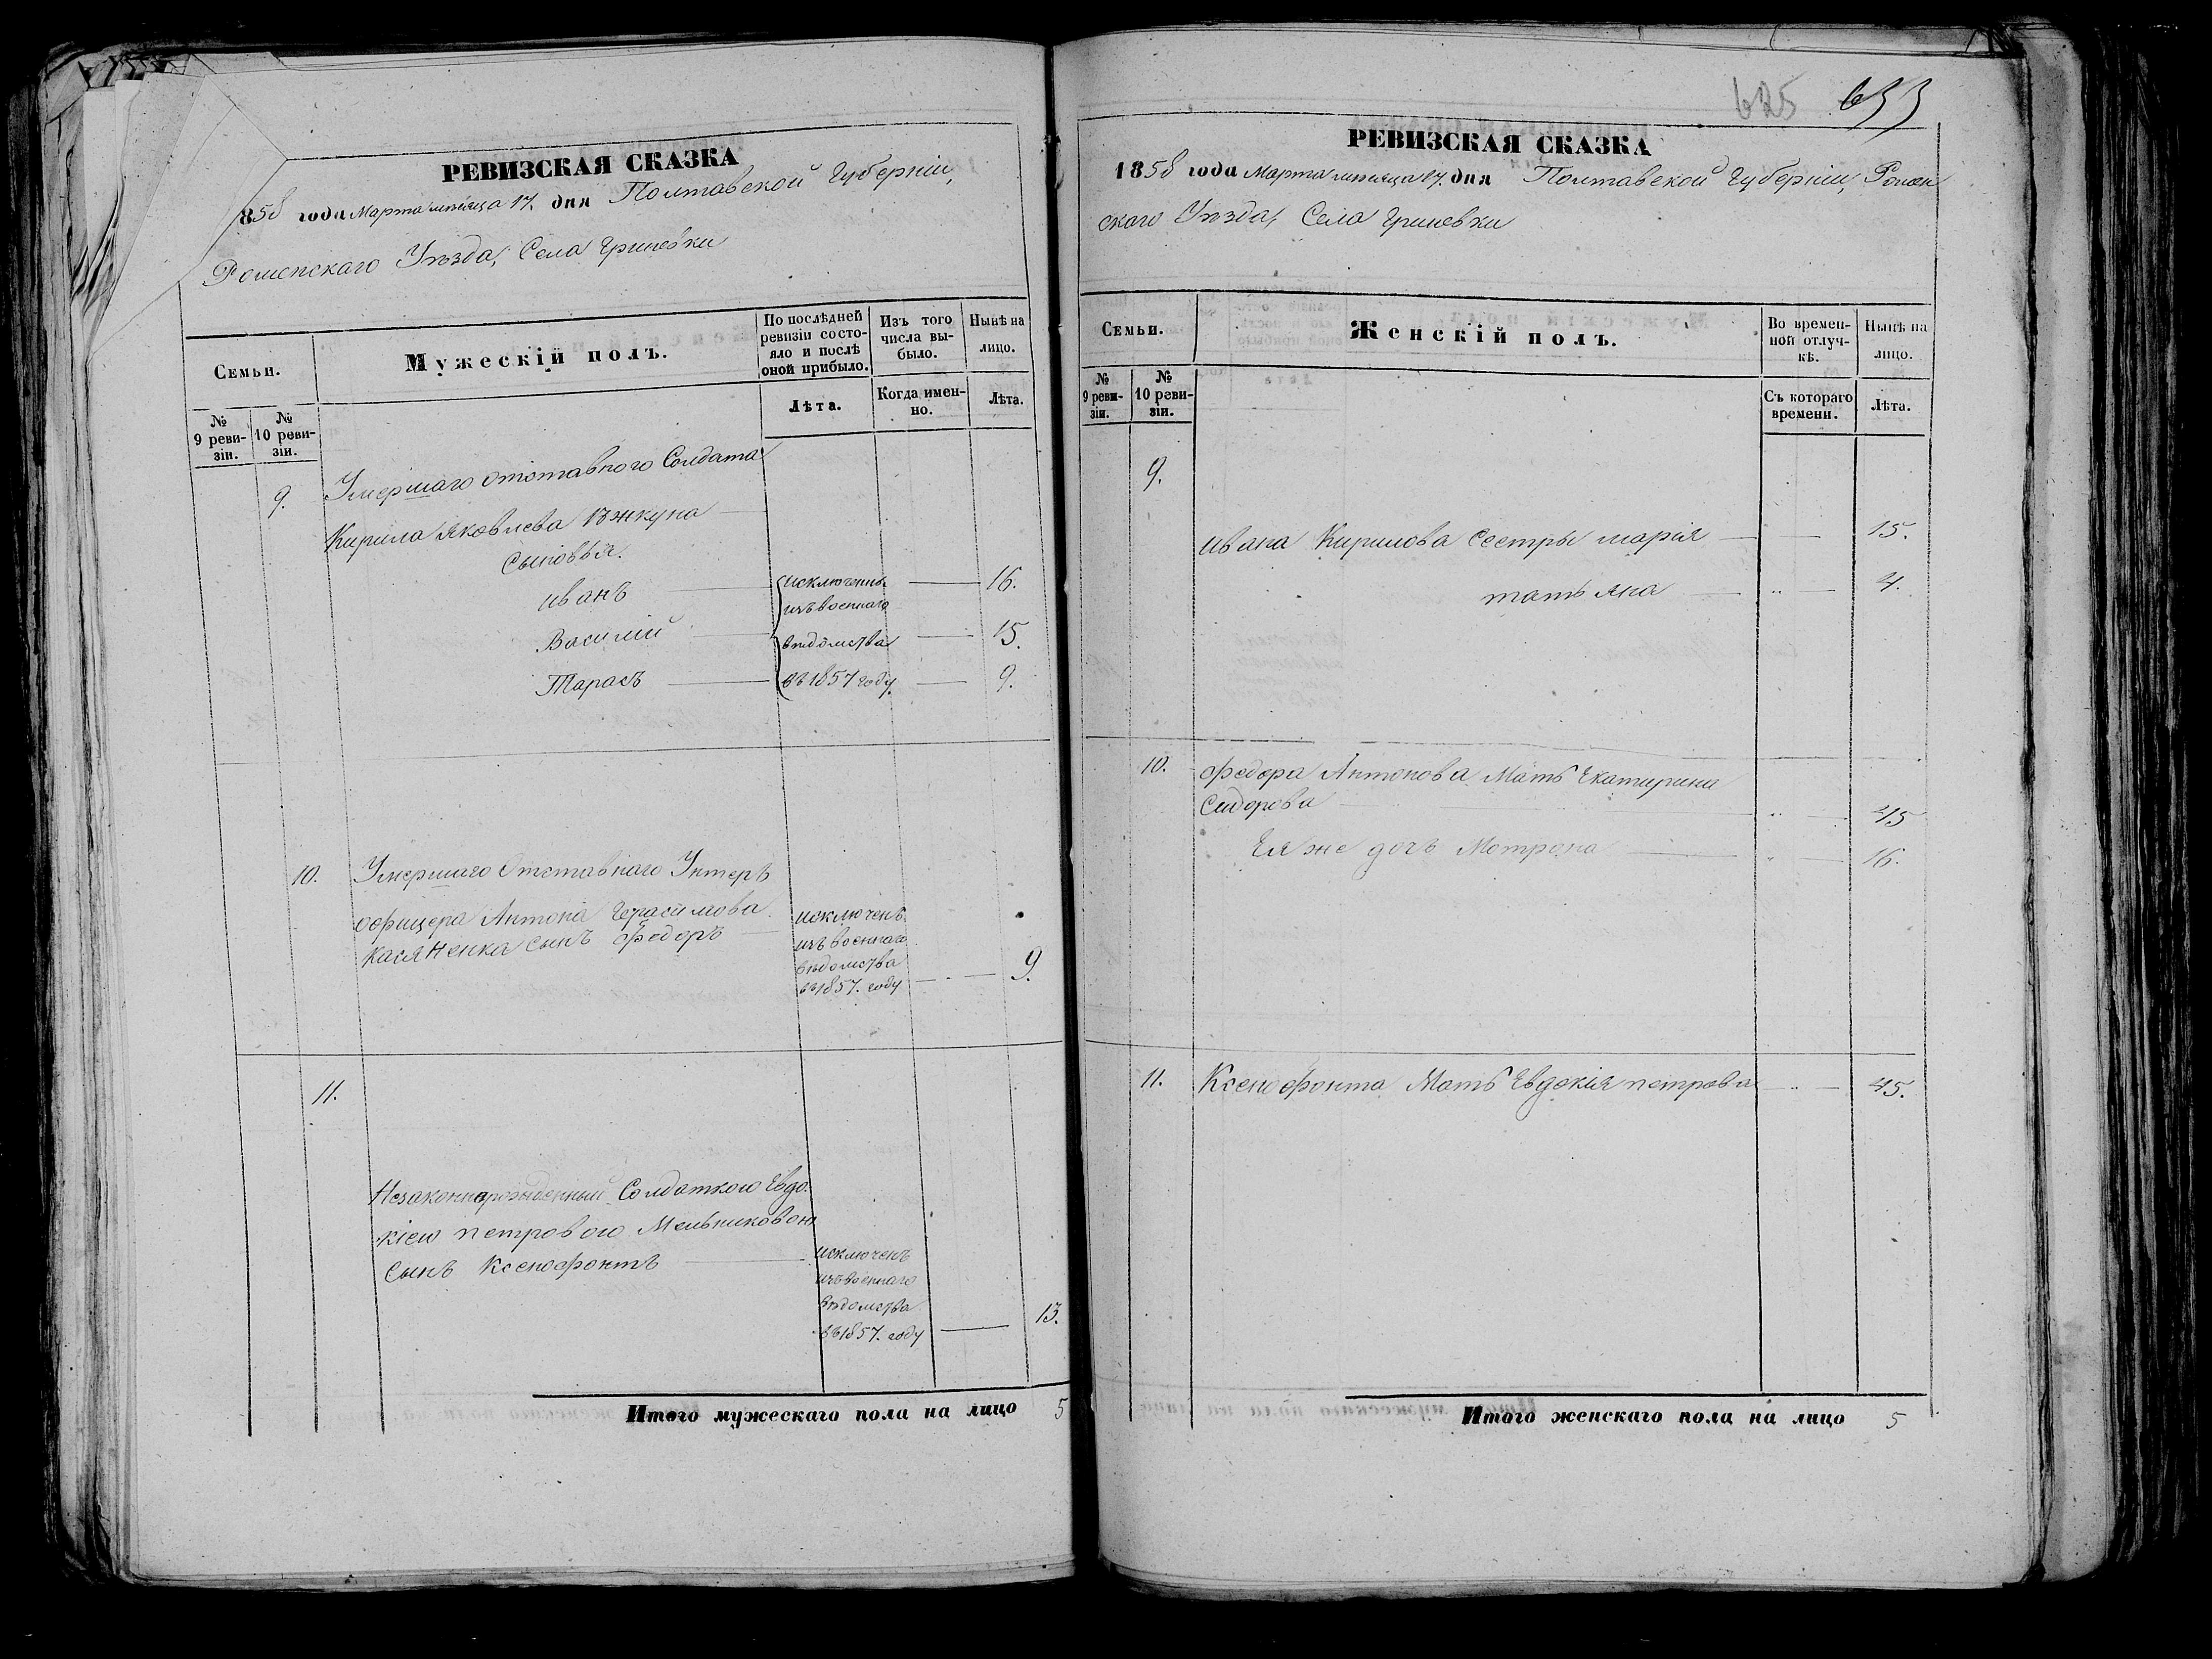 РЕВИЗСКАЯ СКАЗКА
858 года Марта мѣсяца 17. дня Полтавской Губерніи,
Роменскаго Уѣзда, Села Гриневки
Семьи.
Мужескій полъ.
По послѣдней ревизіи состояло и послѣ оной прибыло.
Изъ того числа выбыло.
Нынѣ на лицо.
№ 9 ревизіи.
№ 10 ревизіи.
Лѣта.
Когда именно.
Лѣта.
9. Умершаго отставного Солдата
Кирила Яковлева
Сыновья.
Иванъ исключены 16.
изъ военнаго
Василій вѣдомства 15.
Тарасъ въ 1857 году 9.
10. Умершаго Отставнаго Унтеръ
офицера Антона Герасимова
Касяненка сынъ Федоръ
исключенъ
изъ военнаго
вѣдомства
въ 1857. году 9.
11.
Незаконнорожденный Солдаткою Евдо
кіею Петровою Мельниковою
Сынъ Ксенофонтъ
исключенъ
изъ военнаго
вѣдомства
въ 1857. году 13.
Итого мужескаго пола на лицо 5
625 633
РЕВИЗСКАЯ СКАЗКА
1858 года Марта мѣсяца 17. дня Полтавской Губерніи, Ромен
скаго Уѣзда, Села Гриневки
Семьи.
Женскій полъ.
Во временной отлучкѣ.
Нынѣ на лицо.
№ 9 ревизіи.
№ 10 ревизіи.
Съ котораго времени.
Лѣта.
9.
Ивана Кирилова Сестры Марія 15.
Татьяна " 4.
10. Федора Антонова Мать Екатирина
Сидорова " 45
Ея же дочь Мотрона " 16.
11. Ксенофонта Мать Евдокія Петрова " 45.
Итого женскаго пола на лицо 5